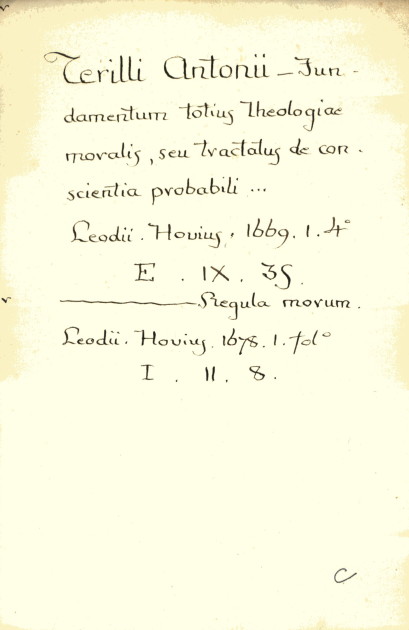 Terilli Antonii — Fun-
damentum totius Theologiae
moralis, seu tractatus de con-
scientia probabili ...
Leodii. Hovius. 1669. 1. 4°
E . IX . 35.
——— Regula morum.
Leodii. Hovius. 1678. 1. fol°
I . II . 8.
C